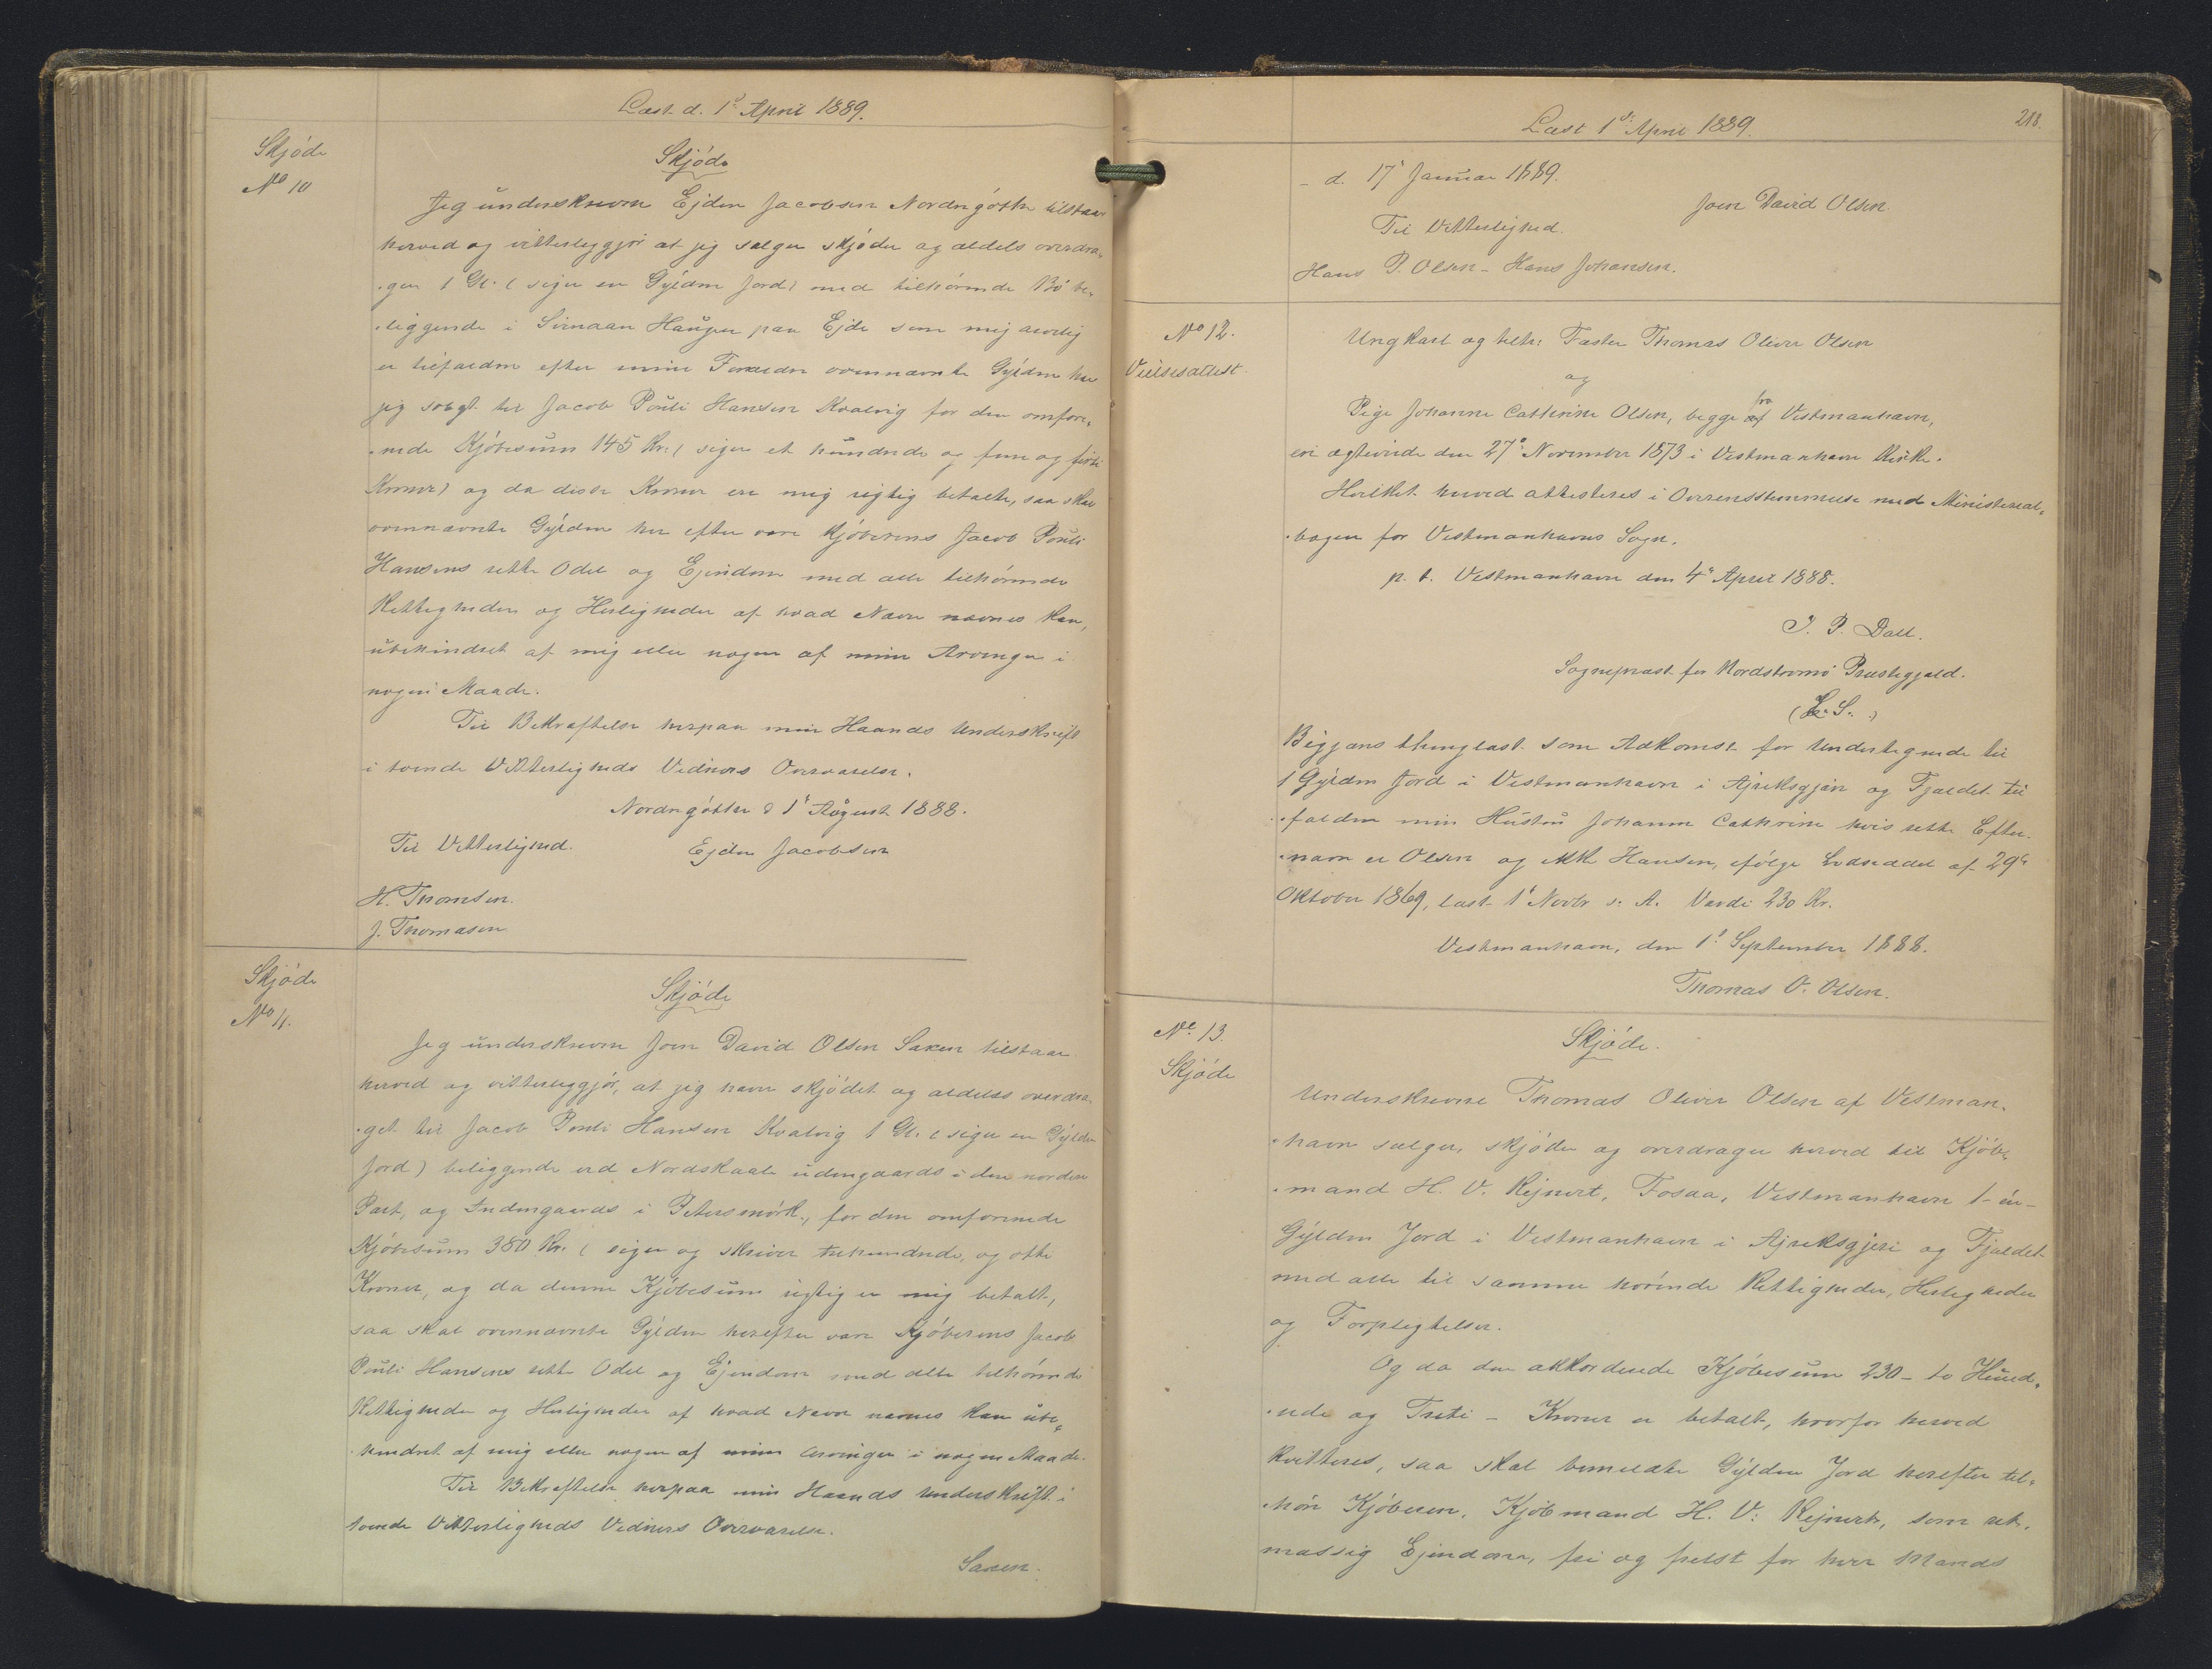 Læst d. 1ste April 1889.
Skjøde
No 10
Skjøde
Jeg underskrevne Ejden Jacobsen Nordregøthe tilstaar
herved og vitterliggjør at jeg sælger skjøder og aldels overdra-
gen 1 Gl. (siger en Gylden Jord) med tilhørende Bø be-
liggende i Haugen paa Ejde som mig arvelig
er tilfalden efter mine Forældre ovennævnte Gylden har
jeg solgt til Jacob Pouli Hansen Kvalvig for den omfore-
nede Kjøbesum 145 Kr. (siger et hundrede og fem og firti
Kroner) og da disse Kroner ere mig rigtig betalte, saa skal
ovennævnte Gylden her efter være Kjøberens Jacob Pouli
Hansens rette Odel og Ejendom med alle tilhørende
Rettigheder og Herligheder af hvad Navn nævnes kan,
ubehindret af mig eller nogen af mine Arvinger i
nogen Maade.
Til Bekræftelse herpaa min Haands Underskrift
i tvende Vitterligheds Vidners Overværelse.
Nordregøthe d 1ste August 1888.
Til Vitterlighed. Ejden Jacobsen
H. Thomsen.
J. Thomasen
Skjøde
No 11.
Skjøde
Jeg underskrevne Joen David Olsen Saxen tilstaar
herved og vitterliggjør, at jeg haver skjødet og aldeles overdra-
get til Jacob Pouli Hansen Kvalvig 1 Gl. (siger en Gylden
Jord) beliggende ved Nordskaale udengaards i den nordre
Part, og Indengaards i Petersmørk, for den omforenede
Kjøbesum 380 Kr. (siger og skriver trehundrede, og otte
Kroner, og da denne Kjøbesum rigtig er mig betalt,
saa skal ovennævnte Gylden herefter være Kjøberens Jacob
Pouli Hansens rette Odel og Ejendom med alle tilhørende
Rettigheder og Herligheder af hvad Navn nævnes kan ube-
hindret af mig eller nogen af mine Arvinger i nogen Maade.
Til Bekræftelse herpaa min Haands Underskrift i
tvende Vitterligheds Vidners Overværelse.
Saxen.
Læst 1ste April 1889.
218.
- d. 17 Januar 1889.
Joen David Olsen.
Til Vitterlighed.
Hans P. Olsen - Hans Johansen.
No 12.
Vielsesattest
Ungkarl og tilk: Fæster Thomas Oliver Olsen
og
Pige Johanne Cathrine Olsen, begge af fra Vestmanhavn,
ere ægteviede den 27de November 1873 i Vestmanhavn Kirke.
Hvilket herved attesteres i Overensstemmelse med Ministerial-
bogen for Vestmanhavns Sogn.
p. t. Vestmanhavn den 4de April 1888.
J. P. Dall.
Sognepræst for Nordstrømø Præstegjæld.
(L. S.)
Begjæres thinglæst som Adkomst for Undertegnede til
1 Gylden Jord i Vestmanhavn i Ajreksgjæri og Fjældet til-
falden min Hustru Johanne Cathrine hvis rette Efter-
navn er Olsen og ikke Hansen, ifølge Lodseddel af 29de
Oktober 1869, læst 1ste Novbr s. A. Værdi 230 Kr.
Vestmanhavn, den 1ste September 1888.
Thomas O. Olsen.
No 13.
Skjøde
Skjøde.
Underskrevne Thomas Oliver Olsen af Vestman-
havn sælger, skjøder og overdrager herved til Kjøb-
mand H. V. Rejnert, Fosaa, Vestmanhavn 1 - en -
Gylden Jord i Vestmanhavn i Ajreksgjeri og Fjældet
med alle til samme hørende Rettigheder, Herligheder
og Forpligtelser.
Og da den akkorderede Kjøbesum 230 - to Hund-
rede og Treti - Kroner er betalt, hvorfor herved
kvitteres, saa skal bemeldte Gylden Jord herefter til-
høre Kjøberen, Kjøbmand H. V: Rejnert, som ret-
mæssig Ejendom, fri og frelst for hver Mands